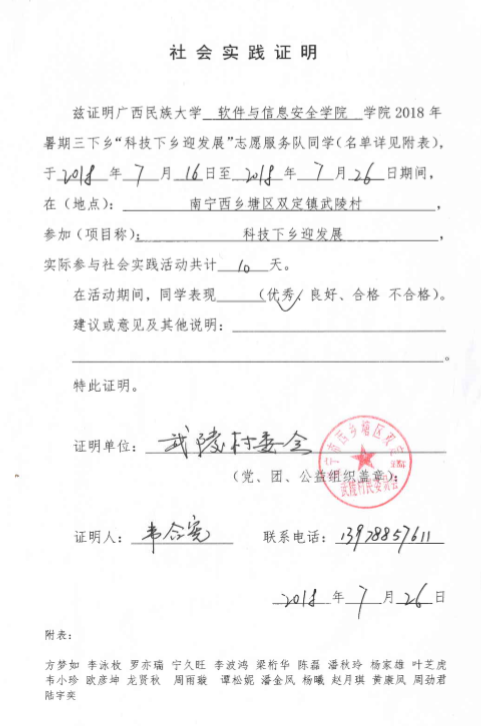 社会实践证明
兹证明广西民族大学 软件与信息安全学院 学院 2018 年
暑期三下乡“科技下乡迎发展”志愿服务队同学(名单详见附表),
于2018 年 7 月 16 日至 2018 年 7 月 26 日期间,
在(地点): 南宁西乡塘区双定镇武陵村 ,
参加(项目称): 科技下乡迎发展 ,
实际参与社会实践活动共计 10 天。
在活动期间,同学表现 (优秀、良好、合格 不合格)。
建议或意见及其他说明:
。
特此证明。
证明单位: 武陵村委会
(党、团、公益组织盖章):
证明人: 韦 联系电话: 13978857611
2018 年 7 月 26 日
附表:
方梦如 李泳枚 罗亦瑞 宁久旺 李波鸿 梁桁华 陈磊 潘秋玲 杨家雄 叶芝虎
韦小珍 欧彦坤 龙贤秋 周雨璇 谭松妮 潘金凤 杨曦 赵月琪 黄康凤 周劲君
陆宇奕